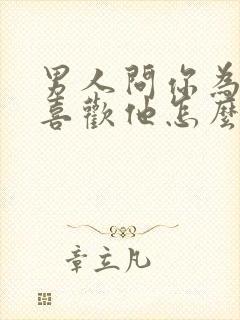 男人問你為
喜歡他怎麼
章立凡